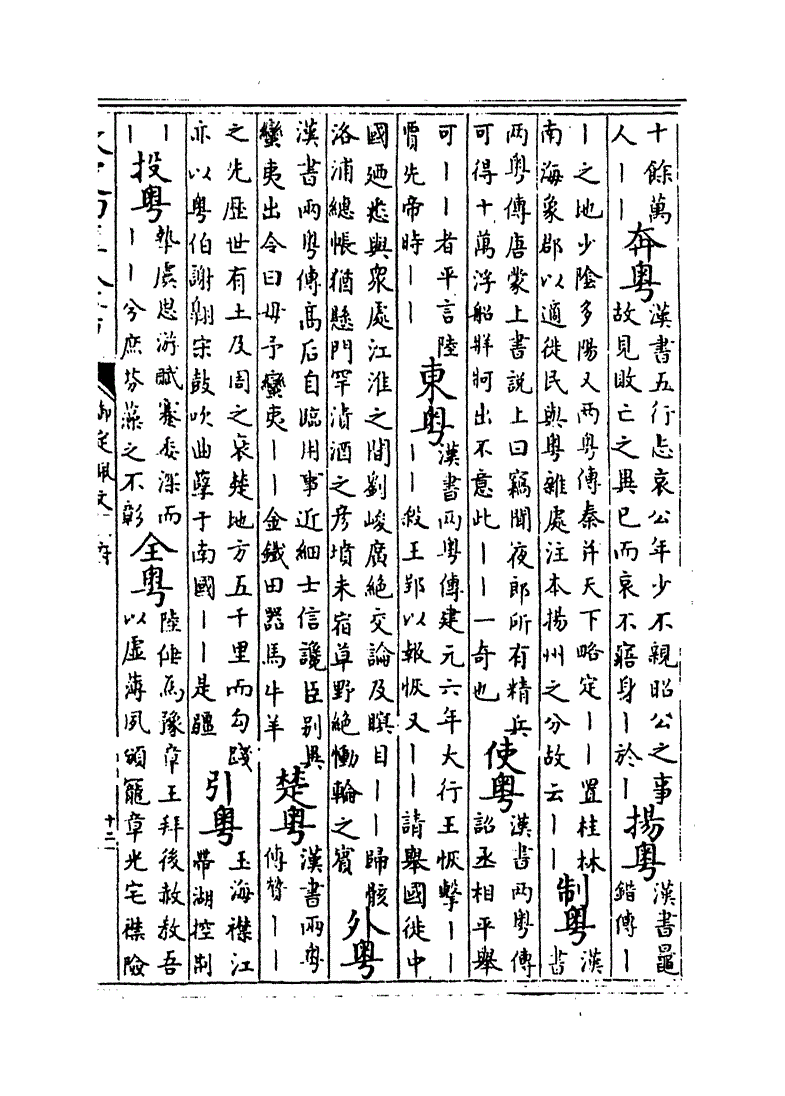 十餘萬
人丨丨
奔粵
漢書五行志哀公年少不親昭公之事
故見敗亡之異已而哀不寤身丨於丨
揚粵
漢書鼂
錯傳丨
丨之地少陰多陽又兩粵傳秦并天下略定丨丨置桂林
南海象郡以適徙民與粵雜處注本揚州之分故云丨丨
制粵
漢
書
兩粵傳唐蒙上書説上曰竊聞夜郎所有精兵
可得十萬浮船牂牁出不意此丨丨一奇也
使粵
漢書兩粵傳
詔丞相平舉
可丨丨者平言陸
賈先帝時丨丨
東粵
漢書兩粵傳建元六年大行王恢擊丨丨
丨丨殺王郢以報恢又丨丨請舉國徙中
國廼悉與衆處江淮之間劉峻廣絶交論及瞑目丨丨歸骸
洛浦總帳猶懸門罕漬酒之彦墳未宿草野絶慟輪之賓
外粵
漢書兩粵傳髙后自臨用事近細士信讒臣别異
蠻夷出令曰毋予蠻夷丨丨金鐵田器馬牛羊
楚粵
漢書兩粵
傳贊丨丨
之先歴世有土及周之衰楚地方五千里而勾踐
亦以粵伯謝翺宋鼓吹曲孽于南國丨丨是疆
引粵
玉海襟江
帶湖控制
丨
丨
投粵
摯虞思游賦蹇委深而
丨丨兮庶芬藻之不彰
全粵
陸倕為豫章王拜後赦教吾
以虛薄夙頒寵章光宅襟險
御定佩文
府
十二